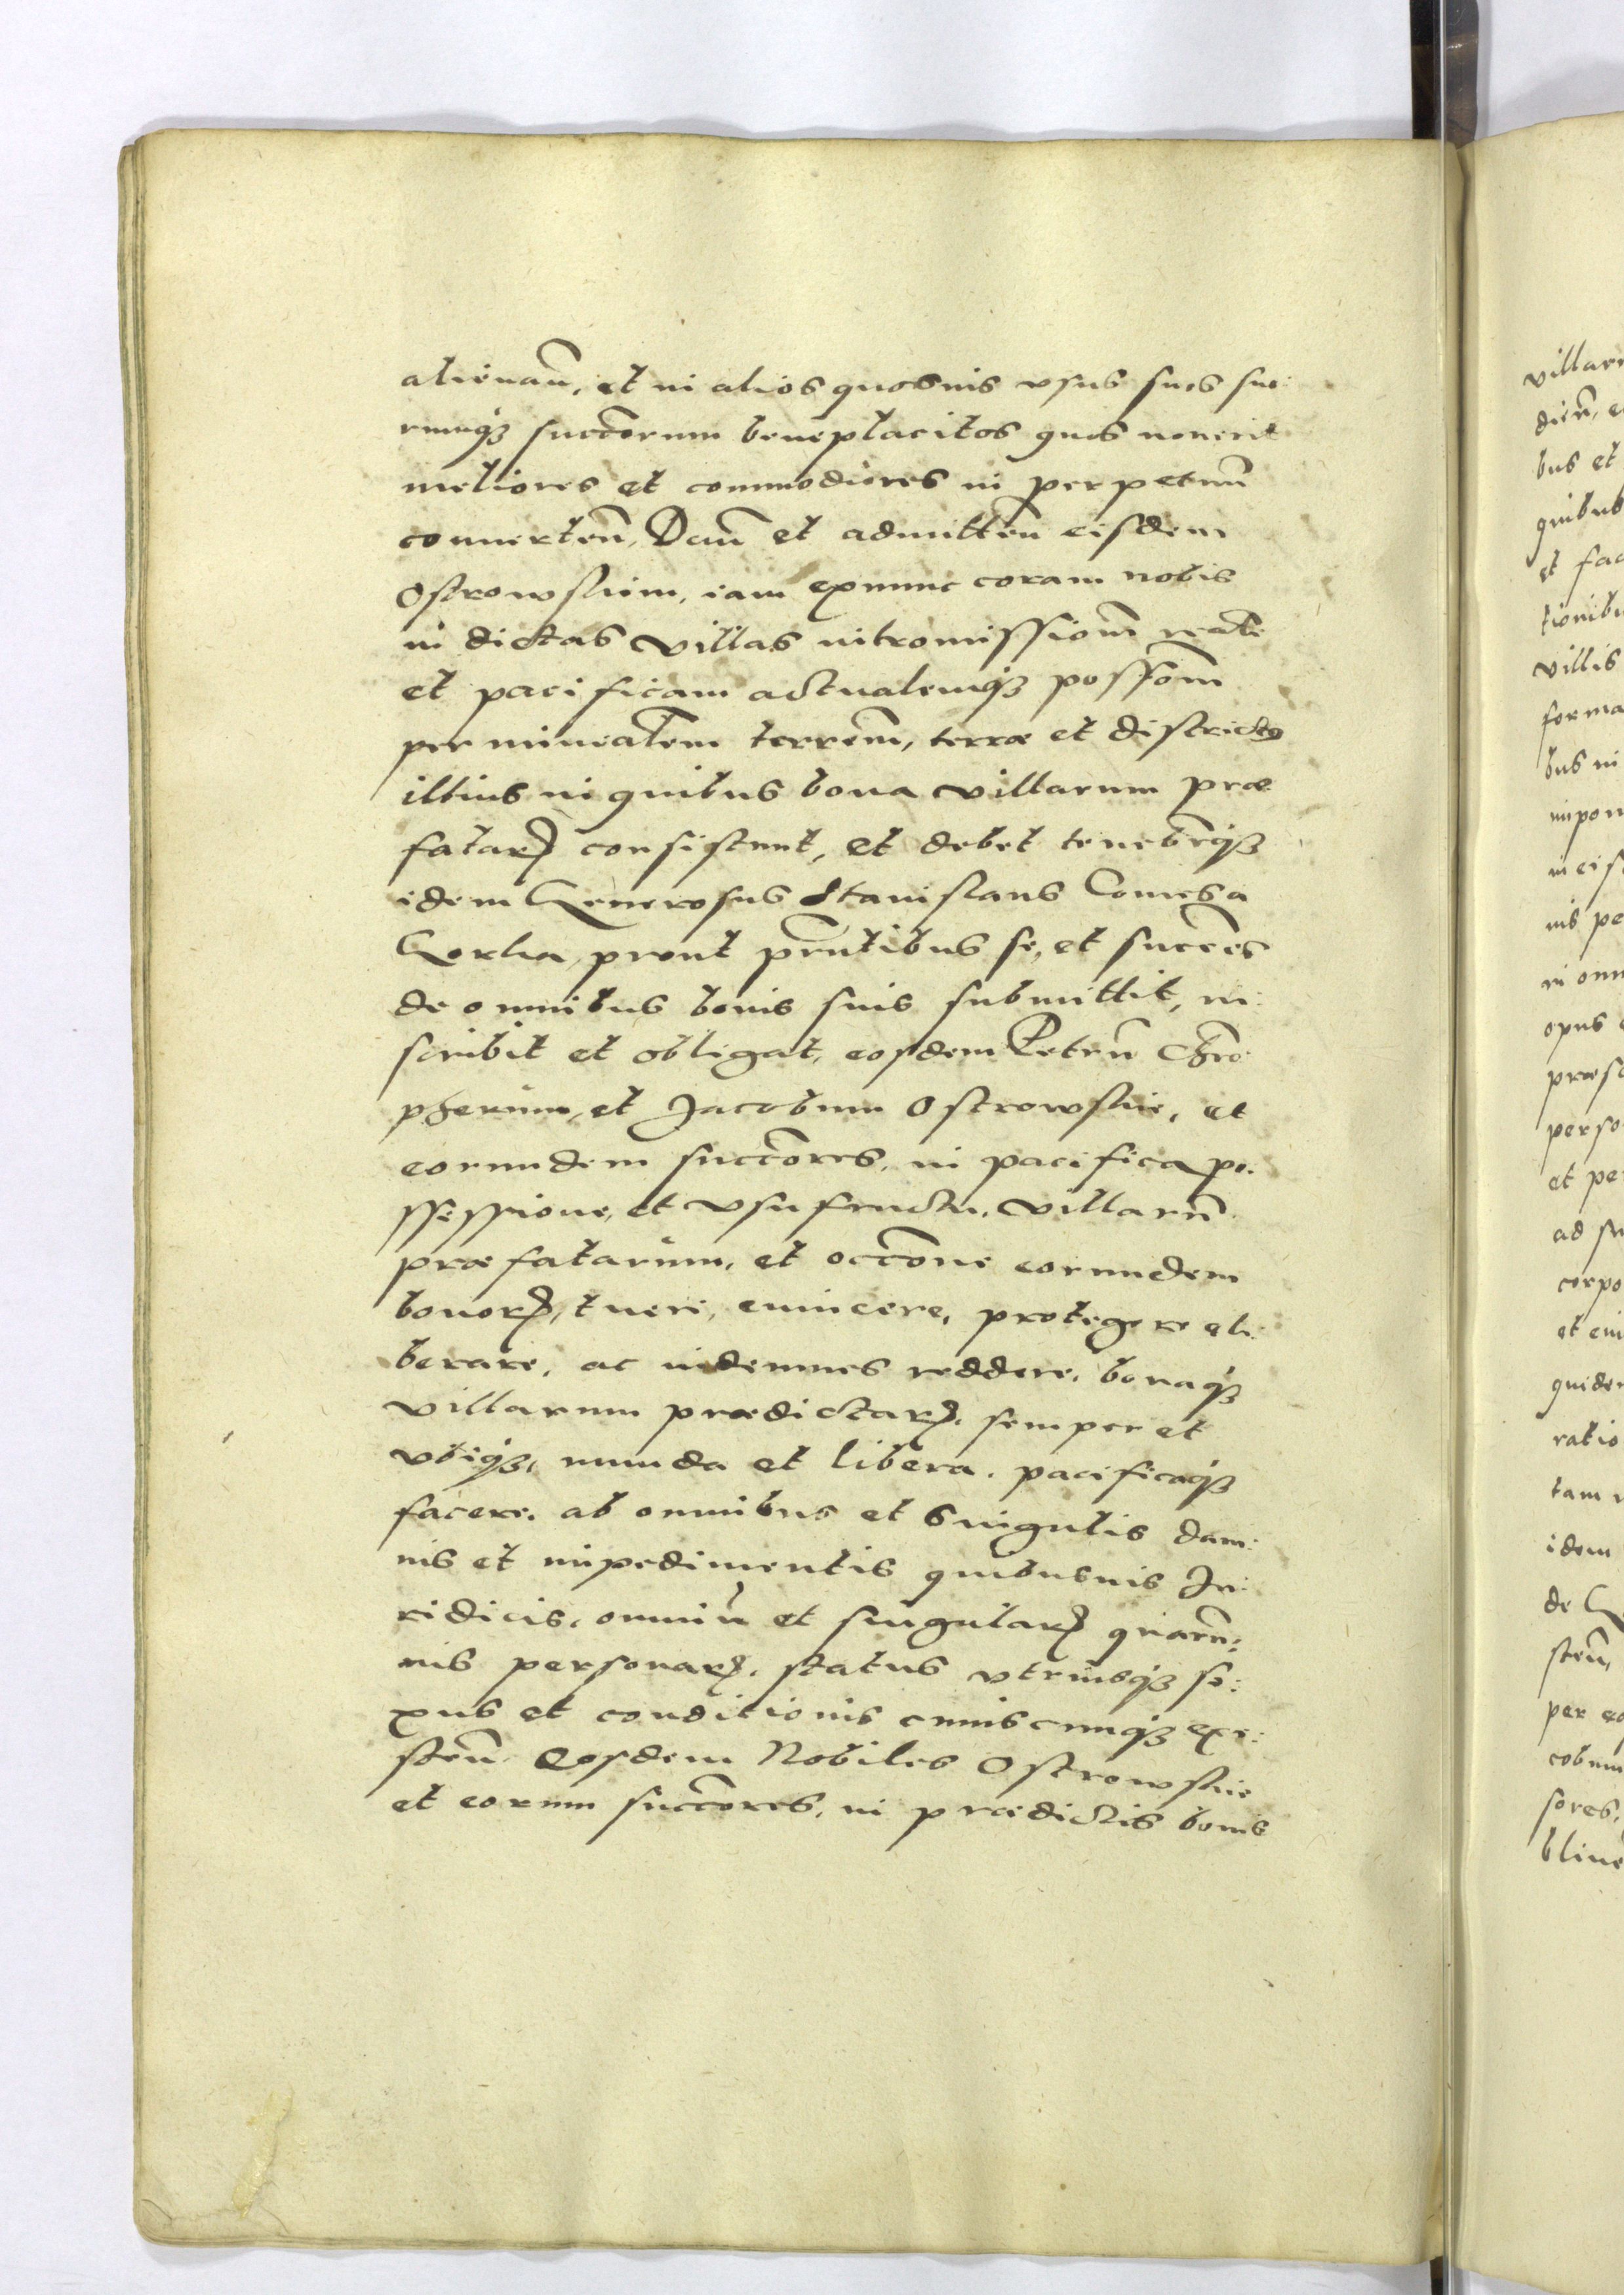 alienan̄, et in alios quosuis vsus suos suo:
rumqȝ succōrum beneplacitos quos nouerit
meliores et commodiores in perpetuū
conuerten̄, Dan̄ et admitten̄ eisdem
Ostrowskim, iam exnunc coram nobis
in dictas villas intromissionē̄ realē
et pacificam actualemqȝ possōm
per ministālem terrēm, terræ et districtus
illius in quibus bona villarum præ
fatarꝝ consistunt, et debet tenebrqȝ
idem Generosus Stanislaus Comes a
Gorka, prout prn̄tibus se, et succēs
de omnibus bonis suis submittit, in:
scribit et obligat, eosdem Petrū Chro:
pherum, et Jacobum Ostrowskie, et
eorundem succōres, in pacifica po:
ssessione, et vsufructu, villarū
præfatarum, et occōne eorundem
bonorꝝ, tueri, euincere, protegere eli:
berare, ac indemnes reddere, bonaqȝ
villarum prædictarꝝ, semper et
vbiqȝ, munda et libera, pacificaqȝ
facere, ab omnibus et singulis dam:
nis et impedimentis quibusuis Ju:
ridicis, omniū et singularꝝ quarū:
uis personarꝝ, status vtriusqȝ se:
xus et conditionis cuiuscunqȝ exi:
sten̄. Eosdem Nobiles Ostrowskie
et eorum succōres, in prædictis bonis
villaru
dicn̄, e
bus et
quibus
et fac
tionibu
villis
forma
bus in
impon
in eis
uis pe
in omn
opus
præsc
perso
et pe
ad su
corpo
et eui
quiden
ratio
tam
idem
de G
sten̄,
per eo
cobum
sores,
bliue